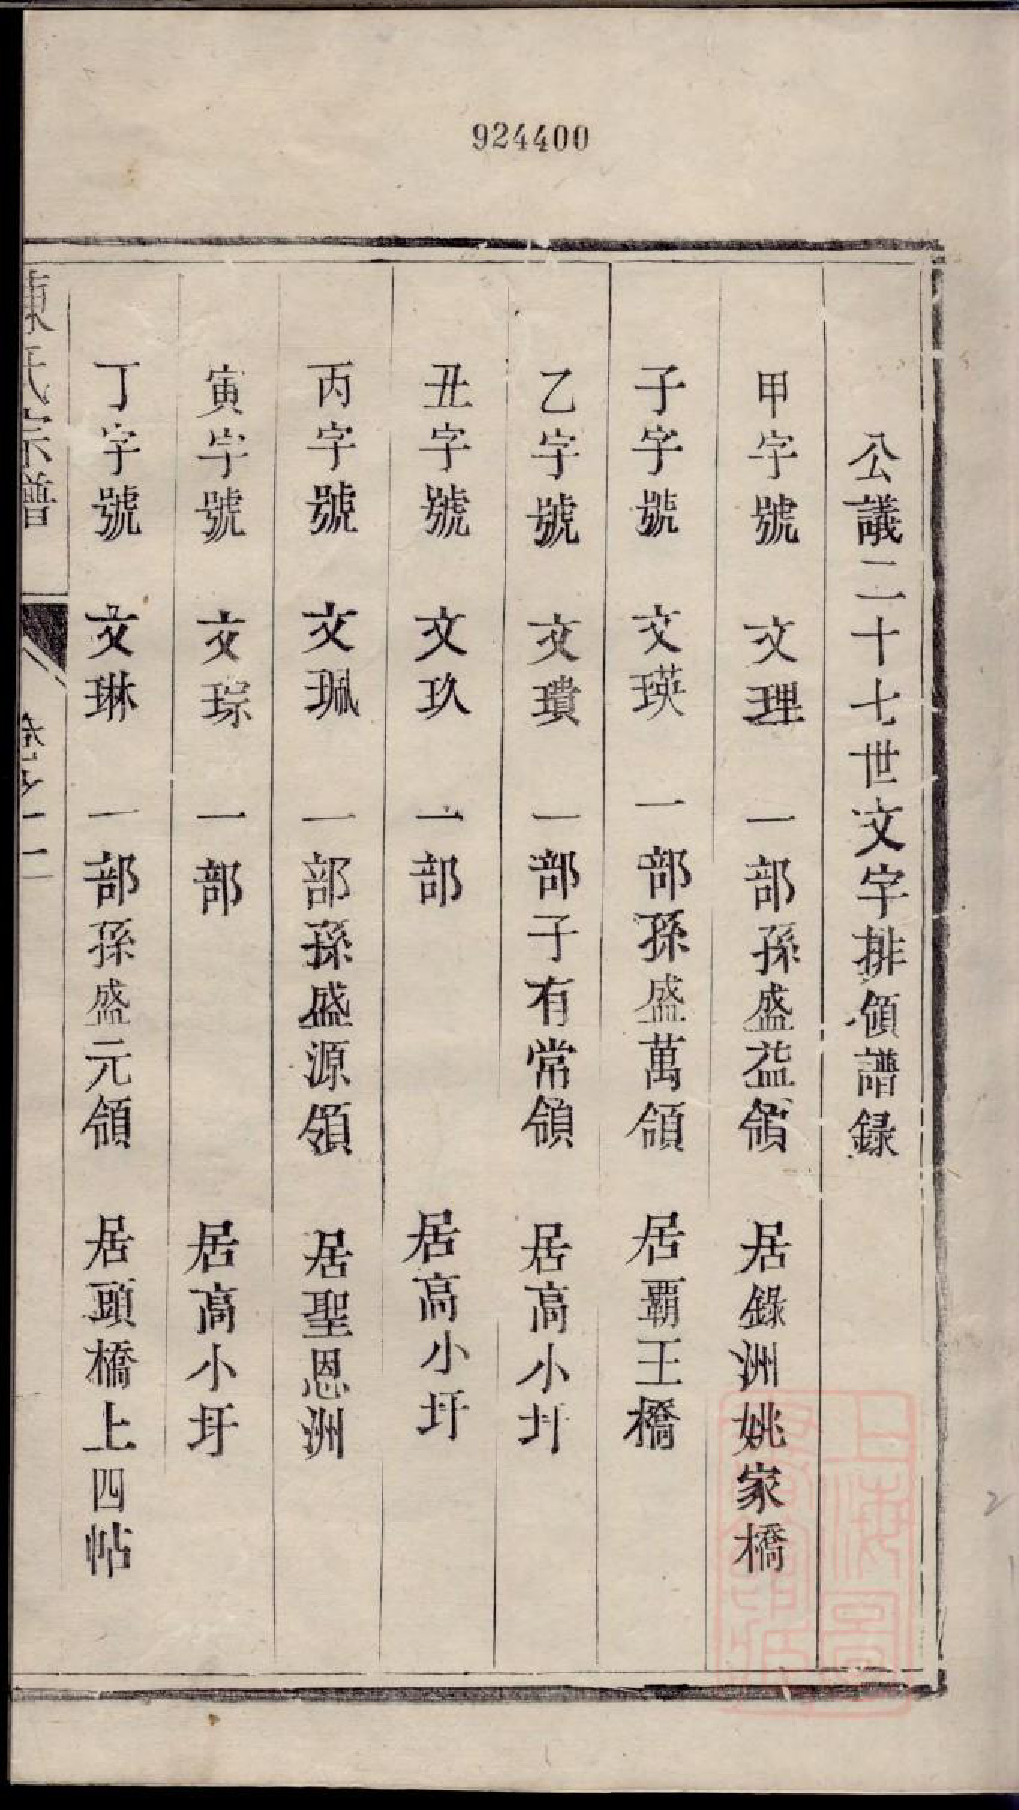 924400
公議二十七世文字排領譜録
甲字號 文理 一部孫盛益領 居錄洲姚家橋
子字號 文瑛 一部孫盛萬領 居覇王橋
乙字號 文璝 一部子有常領 居高小圩
丑字號 文玖 一部 居高小圩
丙字號 文珮 一部孫盛源領 居聖恩洲
寅字號 文琮 一部 居高小圩
丁字號 文琳 一部孫盛元領 居頭橋上四帖
陳氏宗譜 卷之二